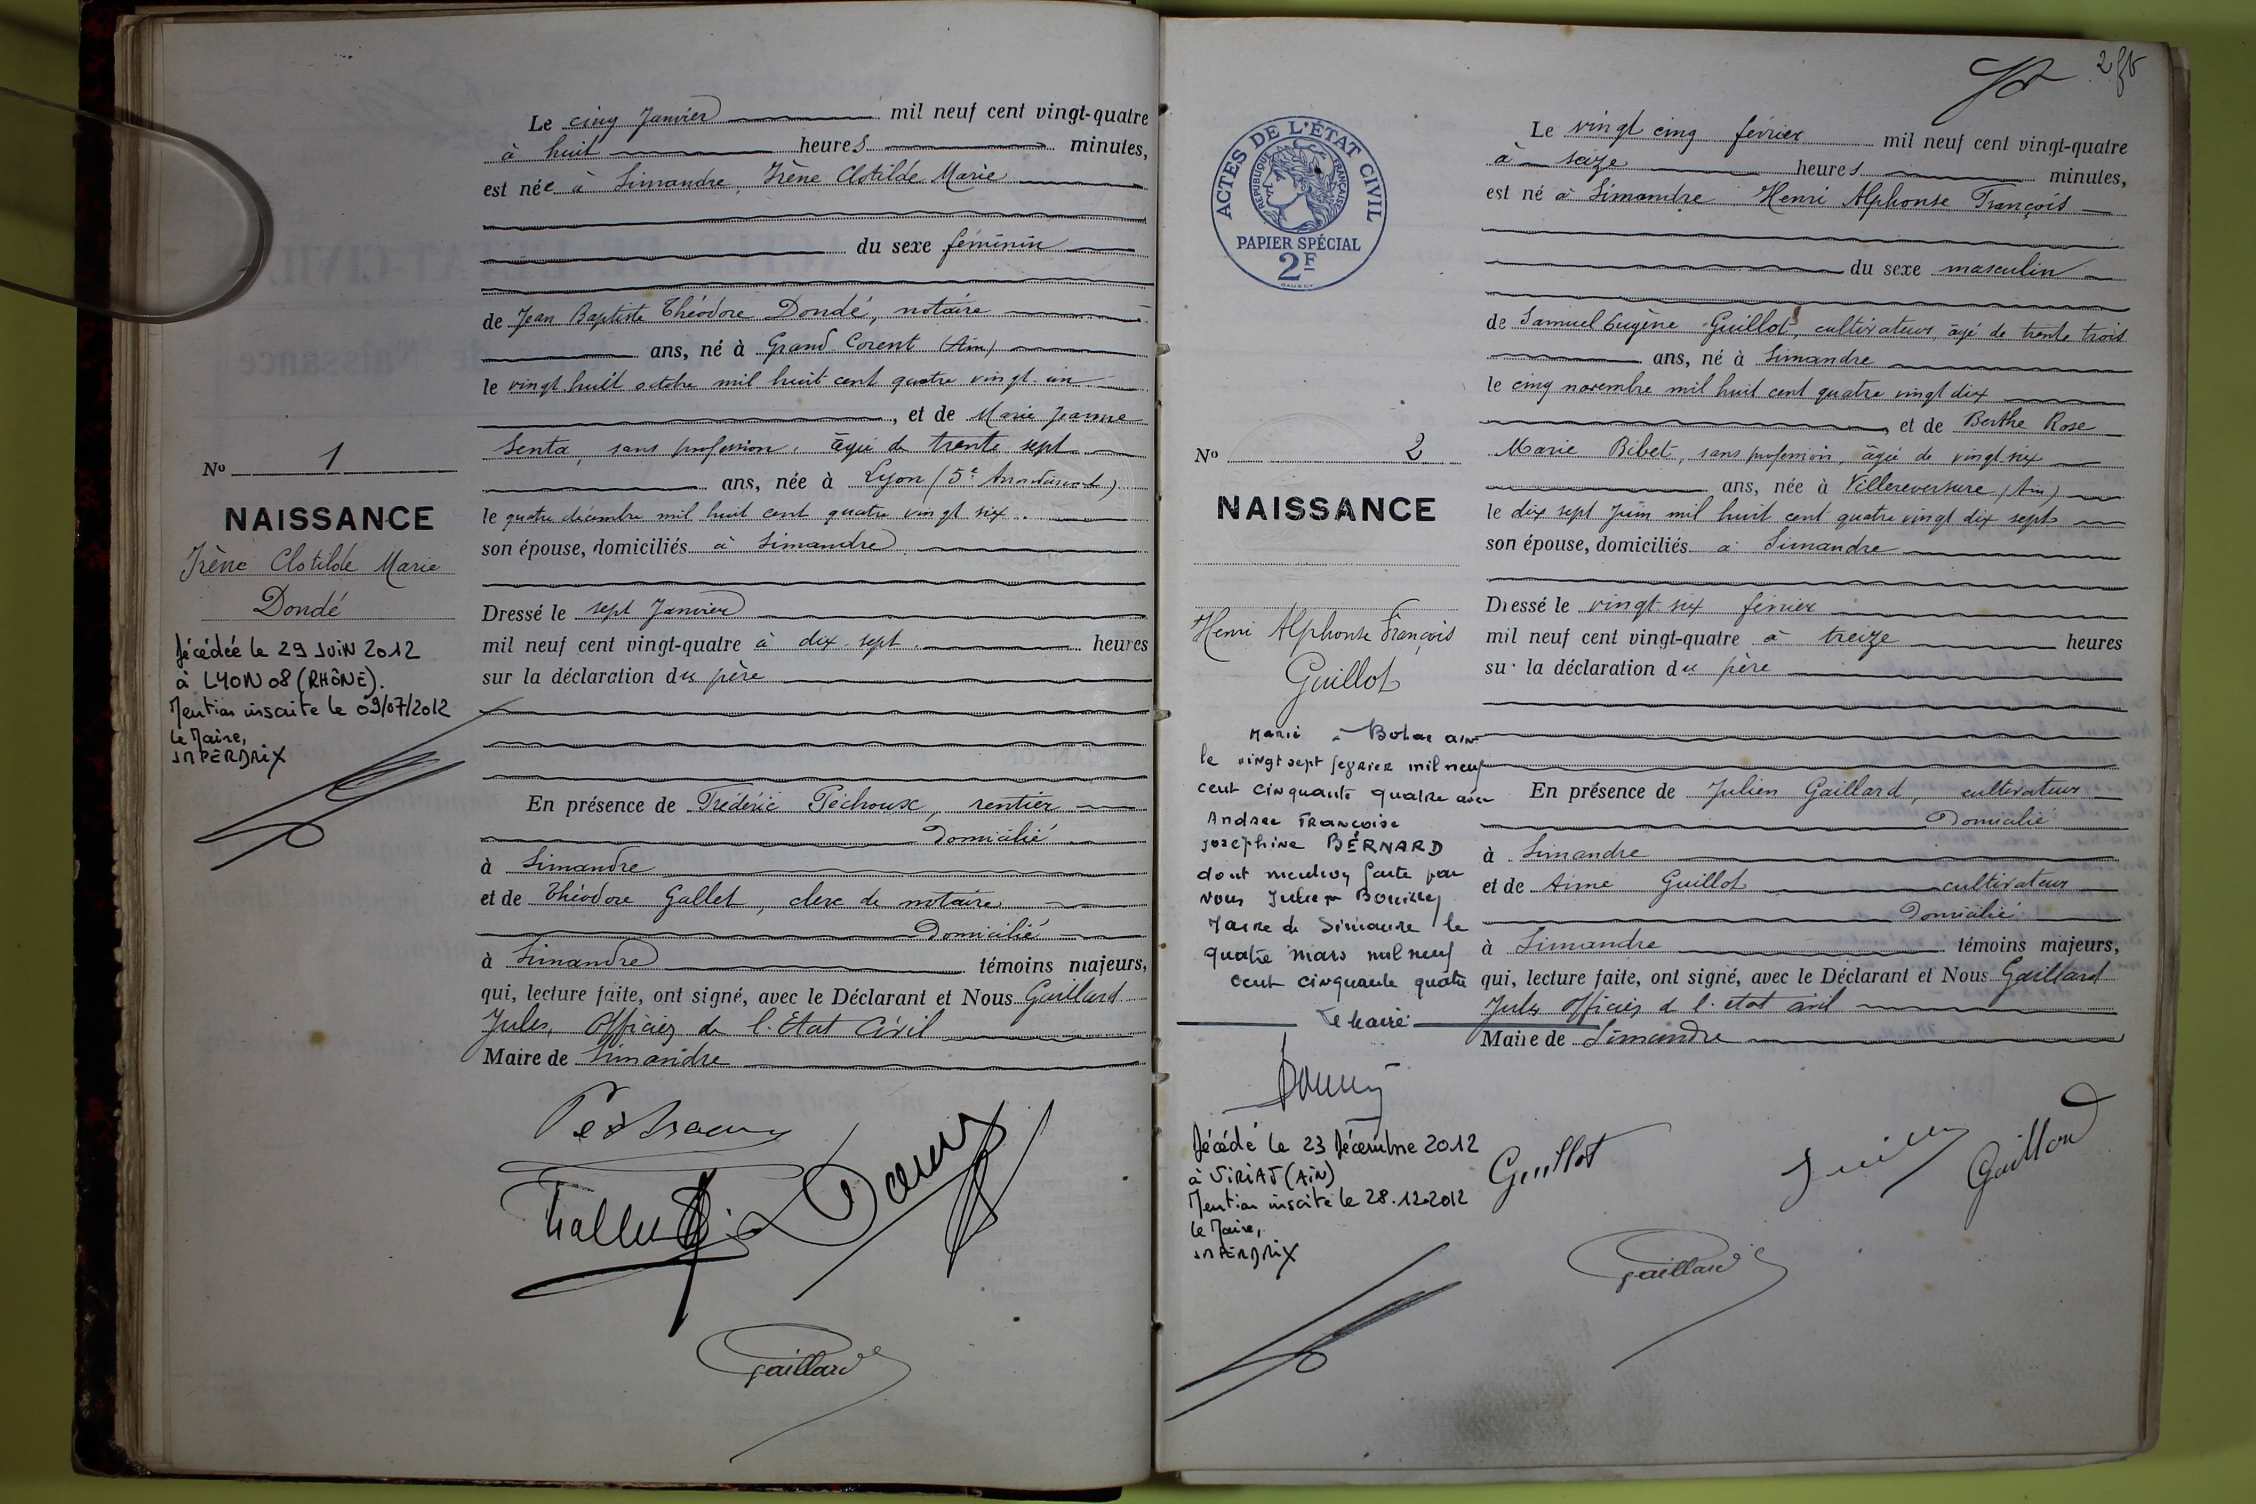 Le cinq Janvier mil neuf cent vingt-quatre
à huit heures minutes,
est née à Simandre, Irène Clotilde Marie
du sexe féminin
de Jean Baptiste Théodore Dondé, notaire
ans, né à Grand Corent (Ain)
le vingt huit octobre mil huit cent quatre vingt un
, et de Marie Jeanne
Senta, sans profession, âgée de trente sept
ans, née à Lyon (5e Arrondissement)
le quatre décembre mil huit cent quatre vingt six.
son épouse, domiciliés à Simandre
Dressé le sept Janvier
mil neuf cent vingt-quatre à dix sept heures
sur la déclaration du père
En présence de Frédéric Péchoux, rentier
Domicilié
à Simandre
et de Théodore Gallet, clerc de notaire
Domicilié
à Simandre témoins majeurs,
qui, lecture faite, ont signé, avec le Déclarant et Nous Gaillard
Jules, Officier de l'Etat Civil
Maire de Simandre
Gaillard
No 1
NAISSANCE
Irène Clotilde Marie
Dondé
Décédée le 29 JUIN 2012
à LYON 08 (RHÔNE).
Mention inscrite le 09/07/2012
Le Maire,
JM PERDRIX
2
ACTES DE L'ÉTAT CIVIL
REPUBLIQUE FRANÇAISE
PAPIER SPÉCIAL
2F
Le vingt cinq février mil neuf cent vingt-quatre
à seize heures minutes,
est né à Simandre Henri Alphonse François
du sexe masculin
de Samuel Eugène Guillot, cultivateur, âgé de trente trois
ans, né à Simandre
le cinq novembre mil huit cent quatre vingt dix
, et de Berthe Rose
Marie Bibet, sans profession, âgée de vingt six
ans, née à Villereversure (Ain)
le dix sept Juin mil huit cent quatre vingt dix sept
son épouse, domiciliés à Simandre
Dressé le vingt six février
mil neuf cent vingt-quatre à treize heures
sur la déclaration du père
En présence de Julien Gaillard, cultivateur
Domicilié
à Simandre
et de Aimé Guillot cultivateur
Domicilié
à Simandre témoins majeurs,
qui, lecture faite, ont signé, avec le Déclarant et Nous Gaillard
Jules officier de l'état civil
Maire de Simandre
Guillot
Gaillard
Gaillard
No 2
NAISSANCE
Henri Alphonse François
Guillot
Marié à Ain
le vingt sept février mil neuf
cent cinquante quatre avec
Andrée Françoise
Joséphine BERNARD
dont mention faite par
nous
Maire de Simandre le
quatre mars mil neuf
cent cinquante quatre
le maire
Décédé le 23 Décembre 2012
à VIRIAT (AIN)
Mention inscrite le 28.12.2012
Le Maire,
JM PERDRIX